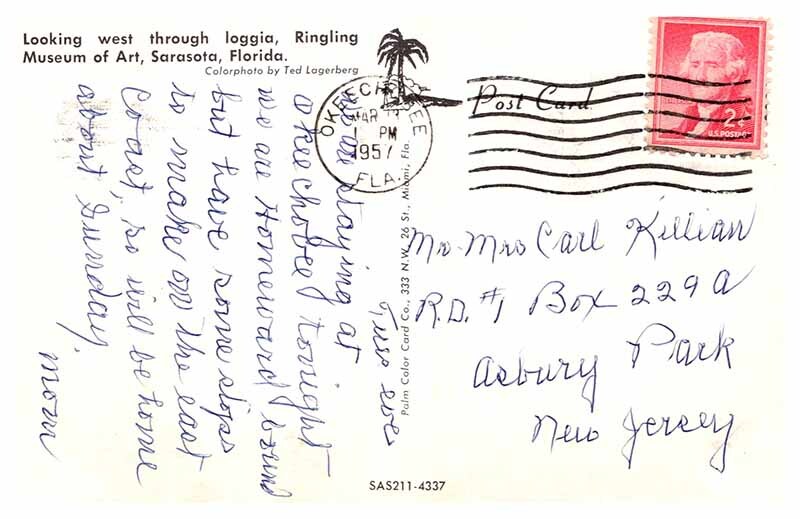 Looking west through loggia, Ringling
Museum of Art, Sarasota, Florida.
Colorphoto by Ted Lagerberg
Post Card
OKEECHOBEE
MAR
1 PM
1957
FLA.
2¢
U.S. POSTAGE
Tues eve
we are staying at
Okeechobee tonight
we are Homeward bound
but have some stops
to make on the east
Coast, so will be home
about Sunday.
Mom
Palm Color Card Co., 333 N.W. 26 St., Miami, Fla.
Mr. Mrs Carl Killian
R.D. #1 Box 229A
Asbury Park
New Jersey
SAS211-4337